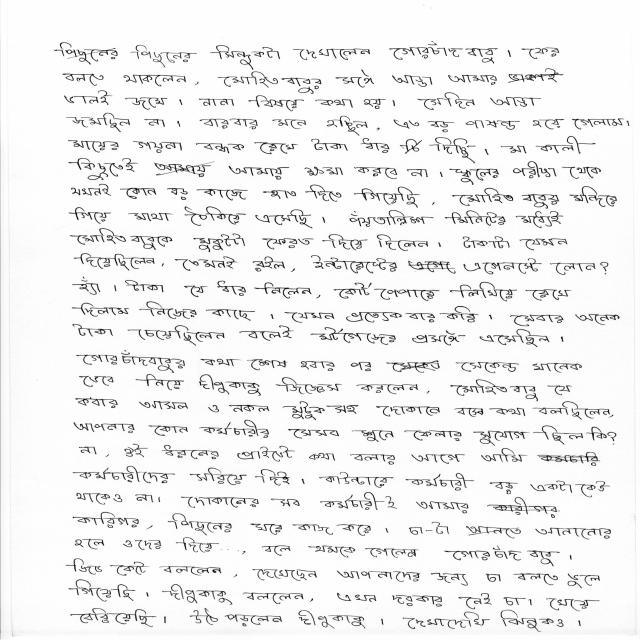 পিছনের পিছনের সিন্দুকটা দেখালেন গোরচাঁদ বাবু। ফের
বলতে থাকলেন, মোহিতবাবুর সঙ্গে আড্ডা আমার
ভালই জমে। নানা বিষয়ে কথা হয়। সেদিন আড্ডা
জমছিল না। বারবার মনে হচ্ছিল, এত বড় পাষন্ড হয়ে গেলাম।
মায়ের গয়না বন্ধক রেখে টাকা ধার দিচ্ছি। মা কালী
কিছুতেই আমায় ক্ষমা করবে না। স্কুলের পরীক্ষা থেকে
যখনই কোন বড় কাজে হাত দিতে গিয়েছি, মোহিত বাবুর মন্দিরে
গিয়ে মাথা ঠেকিয়ে এসেছি। পঁয়তাল্লিশ মিনিটের মধ্যেই
মোহিতবাবুকে মুকুটটা ফেরত দিয়ে দিলেন। টাকাটা যেমন
দিয়েছিলেন, তেমনই রইল, ইন্টারেস্টের এগেনস্টে লোন?
হ্যাঁ। টাকা যে ধার নিলেন, কোর্ট পেপারে লিখিয়ে রেখে
দিলাম নিজের কাছে। যেমন প্রত্যেকবার করি। সেবার অনেক
টাকা চেয়েছিলেন বলেই মর্টগেজের প্রসঙ্গ এসেছিল।
গোরচাঁদবাবুর কথা শেষ হবার পর সেকেন্ড খানেক
ভেবে নিয়ে দীপুকাকু জিজ্ঞেস করলেন, মোহিতবাবু যে
কবার আসল ও নকল মুকুট সহ দোকানে বসে কথা বলছিলেন,
আপনার কোন কর্মচারীর সেসব শুনে ফেলার সুযোগ ছিল কি?
না, এই ধরনের প্রাইভেট কথা বলার আগে আমি
কর্মচারীদের সরিয়ে দিই। কাউন্টারে কর্মচারী বড় একটা কেউ
থাকেও না। দোকানের সব কর্মচারীই আমার
কারিগর, পিছনের ঘরে কাজ করে। চা-টা আনানোর
হলে ওদের দিয়ে..., বলে থমকে গেলেন গোরচাঁদ বাবু।
জিভ কেটে বললেন, দেখেছেন আপনাদের জন্য চা বলতে ভুলে
গিয়েছি। দীপুকাকু বললেন, এখন দরকার নেই চা। খেয়ে
বেরিয়েছি। উঠে পড়লেন দীপুকাকু। দেখাদেখি ঝিনুকও।